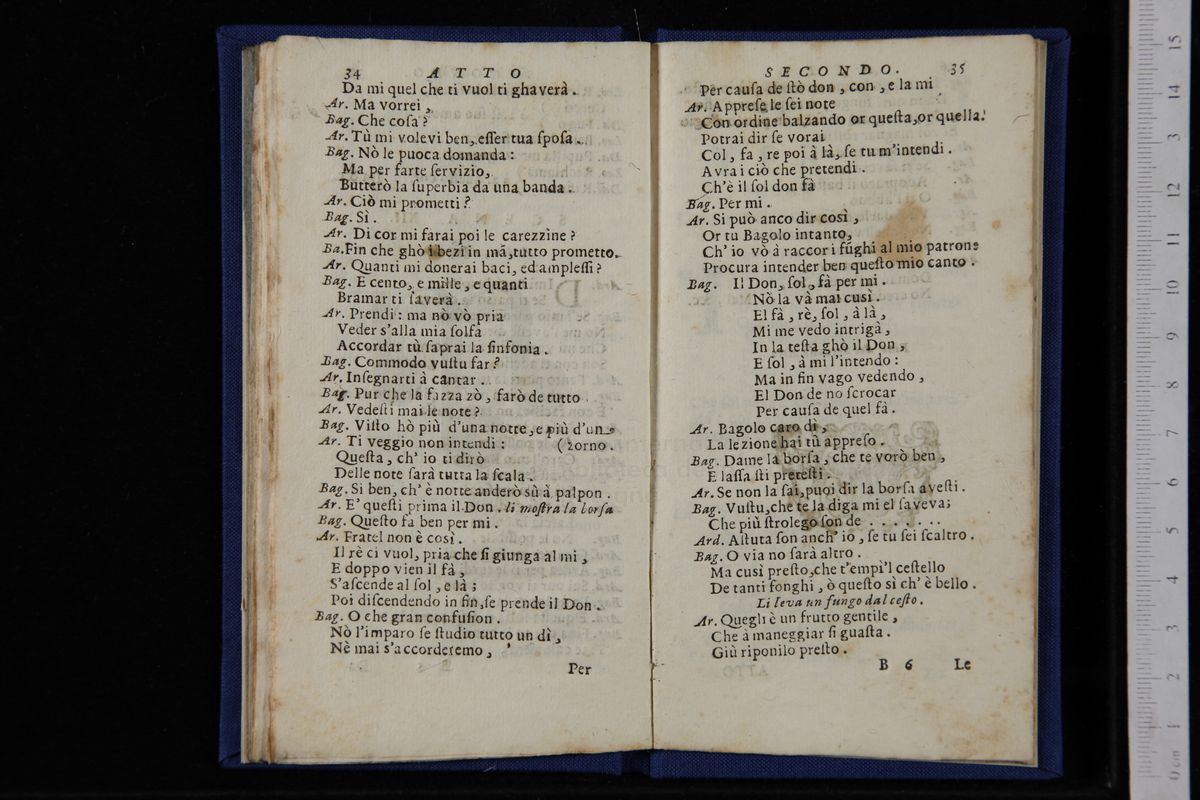 34 ATTO
Da mi quel che ti vuol ti ghaverà.
Ar. Ma vorrei,
Bag. Che coſa?
Ar. Tù mi volevi ben, eſſer tua ſpoſa.
Bag. Nò le puoca domanda:
Ma per farte ſervizio,
Butterò la ſuperbia da una banda.
Ar. Ciò mi prometti?
Bag. Sì.
Ar. Di cor mi farai poi le carezzine?
Ba. Fin che ghò i bezi in mã, tutto prometto.
Ar. Quanti mi donerai baci, ed ampleſſi?
Bag. E cento, e mille, e quanti
Bramar ti ſaverà.
Ar. Prendi: ma nò vò pria
Veder s'alla mia ſolfa
Accordar tù ſaprai la ſinfonia.
Bag. Commodo vuſtu far?
Ar. Inſegnarti à cantar.
Bag. Pur che la fazza zò, farò de tutto.
Ar. Vedeſti mai le note?
Bag. Viſto hò più d'una notte, e più d'un
Ar. Ti veggio non intendi: (zorno.
Queſta, ch'io ti dirò
Delle note ſarà tutta la ſcala.
Bag. Si ben, ch'è notte anderò sù à palpon.
Ar. E' queſti prima il Don. li moſtra la borſa
Bag. Queſto fa ben per mi.
Ar. Fratel non è così.
Il rè ci vuol, pria che ſi giunga al mi,
E doppo vien il fà,
S'aſcende al ſol, e là;
Poi diſcendendo in fin, ſe prende il Don.
Bag. O che gran confuſion.
Nò l'imparo ſe ſtudio tutto un dì,
Nè mai s'accorderemo,
Per
SECONDO. 35
Per cauſa de ſtò don, con, e la mi
Ar. Appreſe le ſei note
Con ordine balzando or queſta, or quella.
Potrai dir ſe vorai
Col, fa, re poi à là, ſe tu m'intendi.
Avrai ciò che pretendi.
Ch'è il ſol don fà
Bag. Per mi.
Ar. Si può anco dir così,
Or tu Bagolo intanto,
Ch'io vò à raccor i fũghi al mio patrone
Procura intender ben queſto mio canto.
Bag. Il Don, ſol, fà per mi.
Nò la và mai cusì.
El fà, rè, ſol, à là,
Mi me vedo intrigà,
In la teſta ghò il Don,
E ſol, à mi l'intendo:
Ma in fin vago vedendo,
El Don de no ſcrocar
Per cauſa de quel fà.
Ar. Bagolo caro dì,
La lezione hai tù appreſo.
Bag. Dame la borſa, che te vorò ben,
E laſſa ſti preteſti.
Ar. Se non la ſai, puoi dir la borſa aveſti.
Bag. Vuſtu, che te la diga mi el ſaveva;
Che più ſtrolego ſon de . . . . . . .
Ard. Aſtuta ſon anch'io, ſe tu ſei ſcaltro.
Bag. O via no ſarà altro.
Ma cusì preſto, che t'empi'l ceſtello
De tanti fonghi, ò queſto sì ch'è bello.
Li leva un fungo dal ceſto.
Ar. Quegli è un frutto gentile,
Che à maneggiar ſi guaſta.
Giù riponilo preſto.
B 6 Le
0 cm 1 2 3 4 5 6 7 8 9 10 11 12 13 14 15